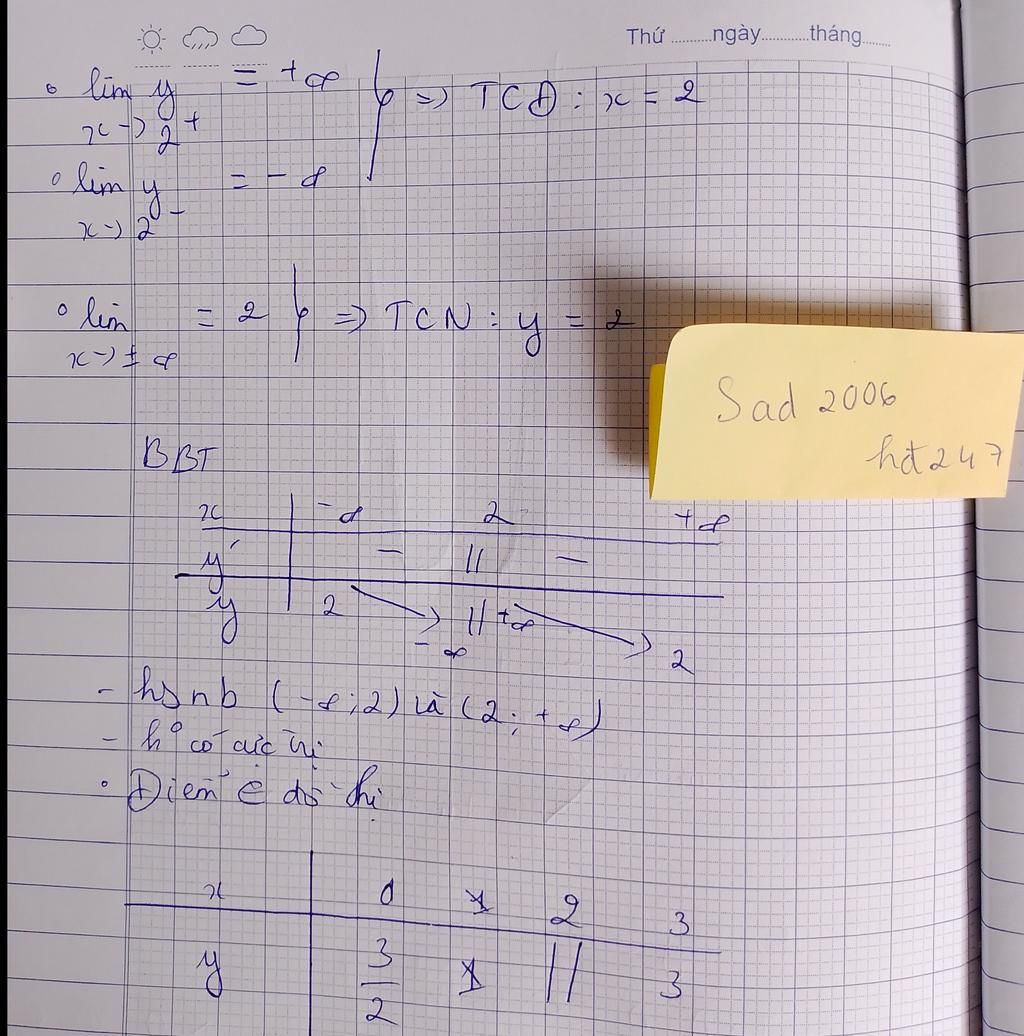 Thứ ..........ngày...........tháng.......
∘ lim y = +∞ } => TCĐ : x = 2
x→2⁺
∘ lim y = -∞
x→2⁻
∘ lim = 2 } => TCN : y = 2
x→±∞
Sad 2006
hđ247
BBT
x | -∞ 2 +∞
y' | - || -
y | 2 -∞ || +∞ 2
- hsnb (-∞;2) và (2;+∞)
- k° có cực trị
∘ Điểm ∈ đồ thị
x | 0 2 3
y | 3/2 || 3